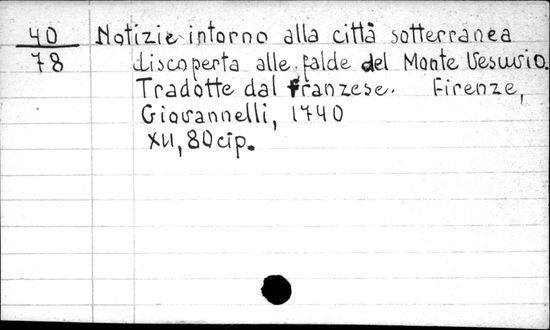 40 Notizie intorno alla città sotterranea
78 discoperta alle falde del Monte Vesuvio.
Tradotte dal franzese. Firenze,
Giovannelli, 1740
XII, 80 cip.